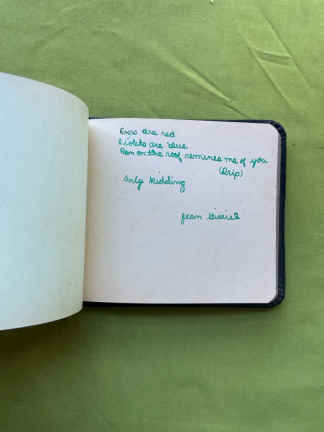 Roses are red
Violets are blue
Rain on the roof reminds me of you
(Drip)
Only kidding
Jean